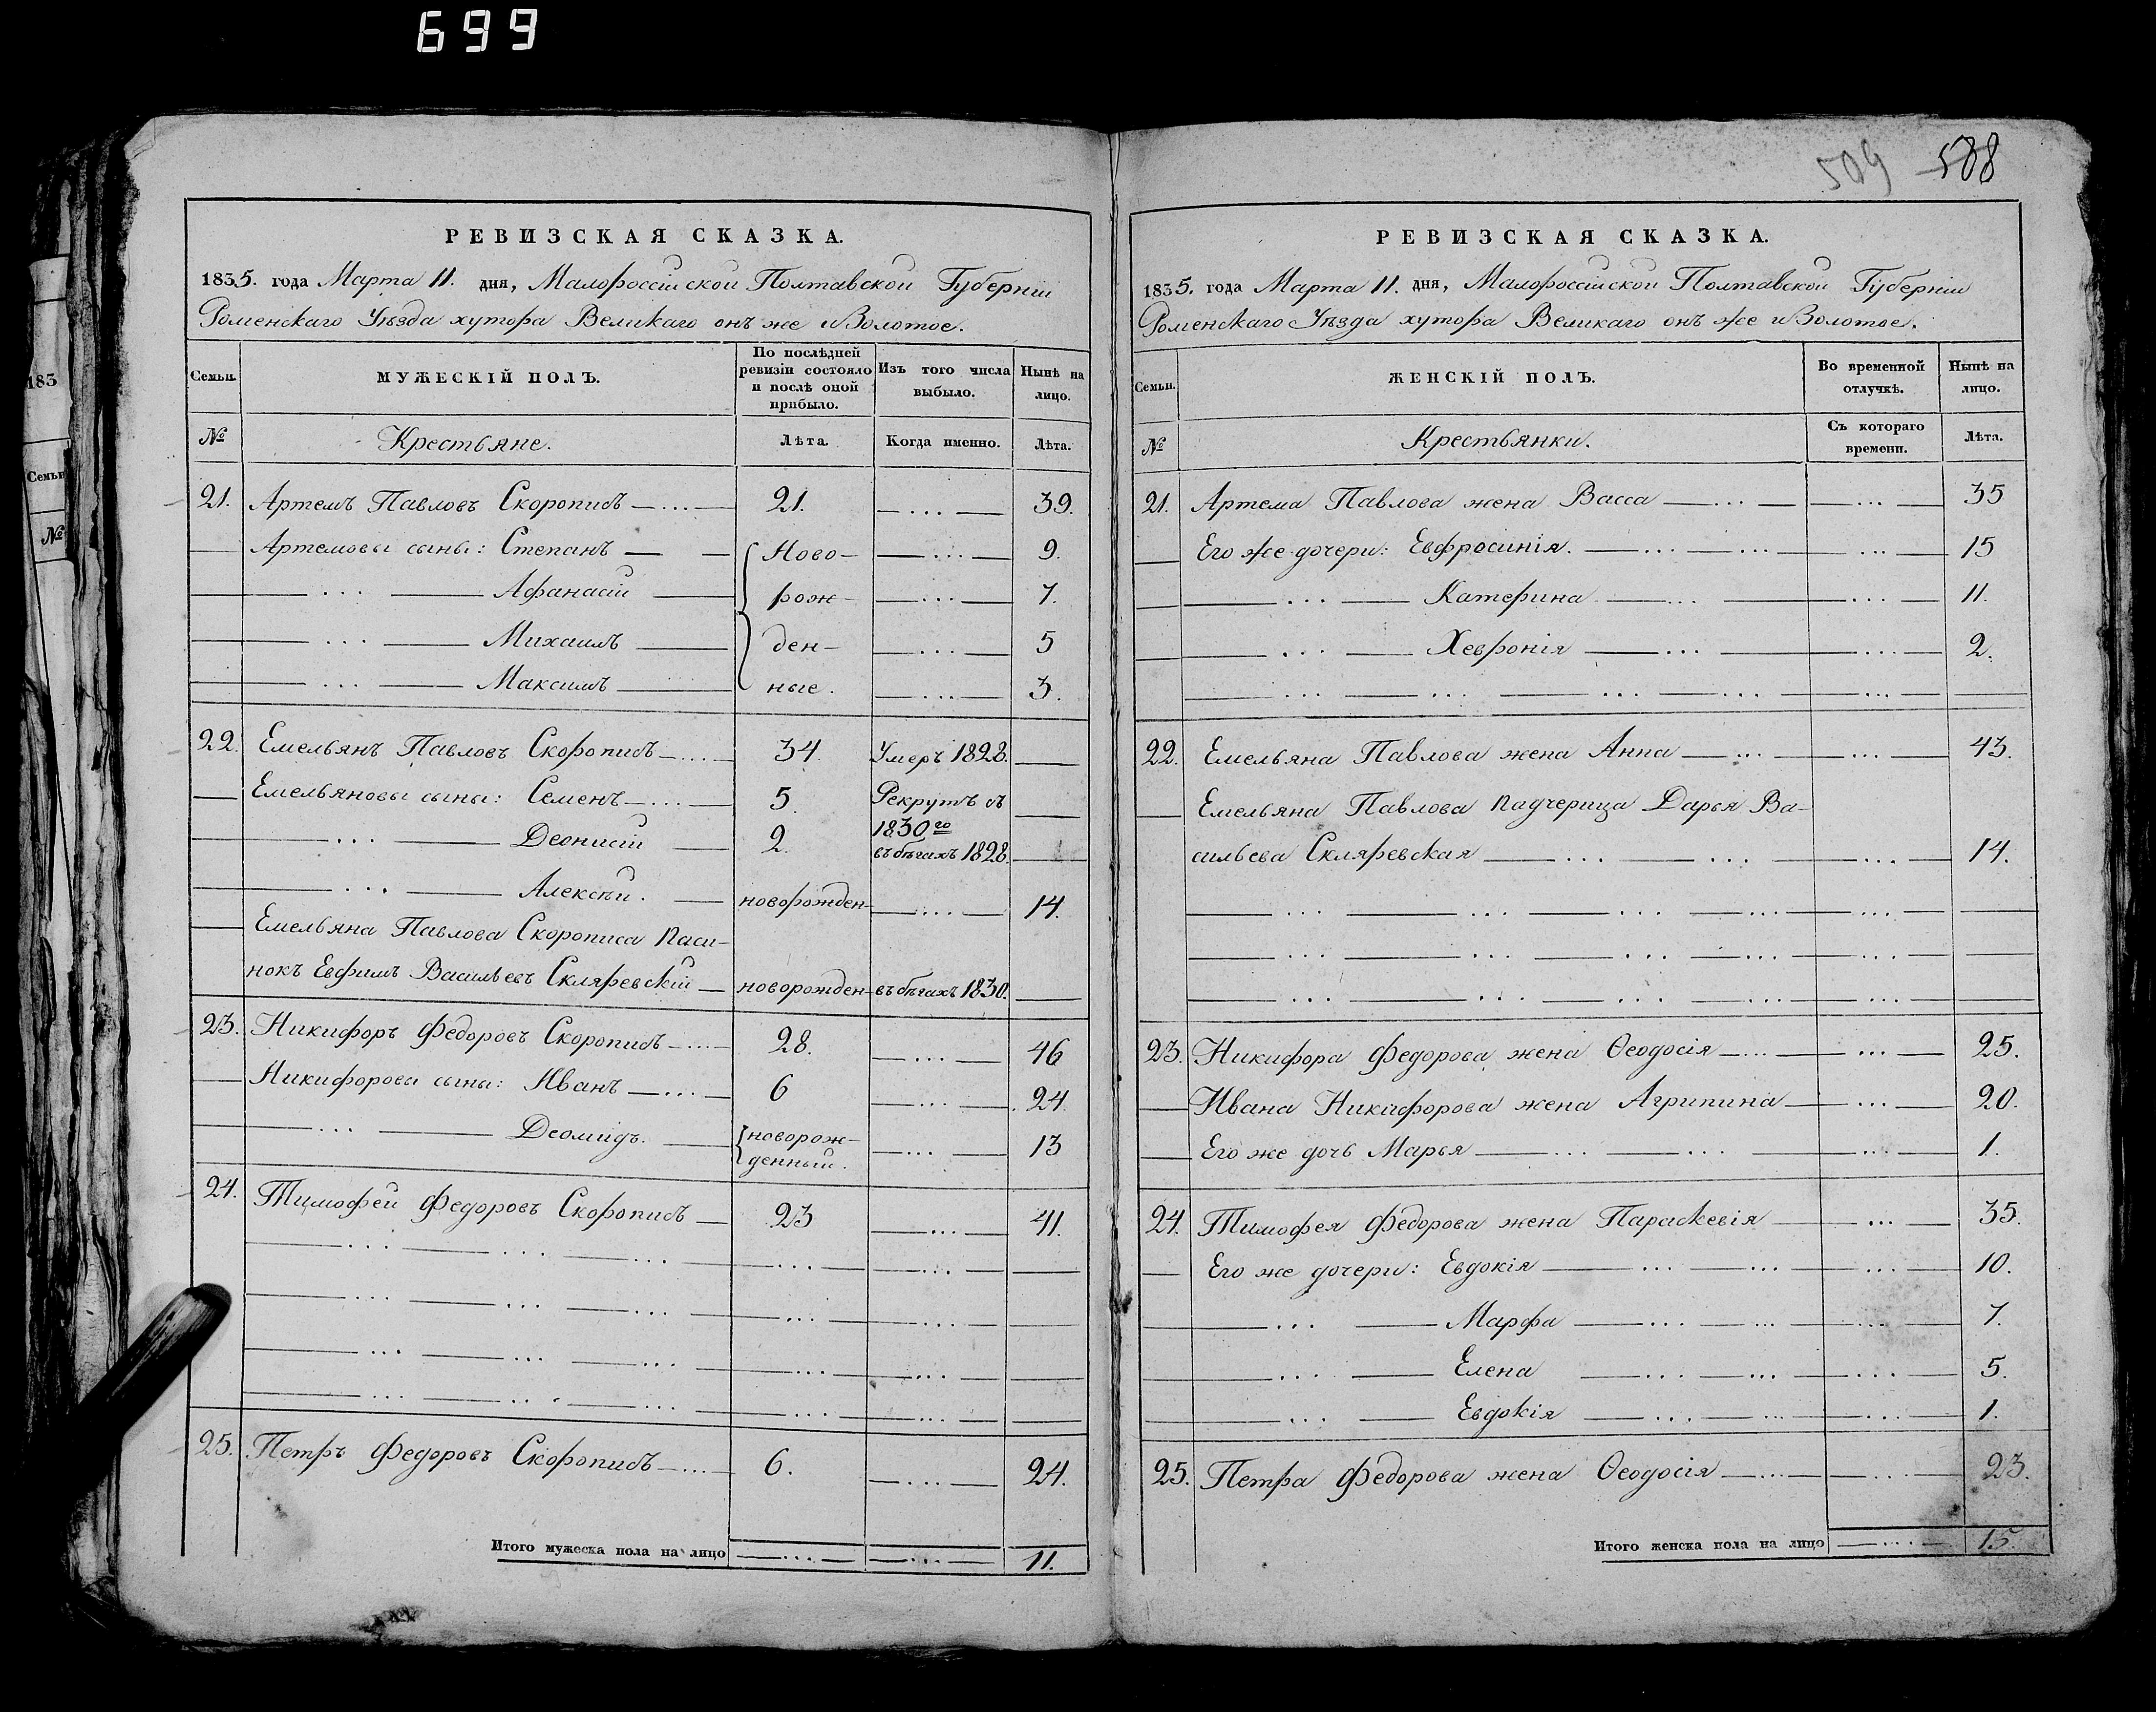 699
509 588
РЕВИЗСКАЯ СКАЗКА.
1835. года Марта 11. дня, Малороссійской Полтавской Губерніи
Роменскаго Уѣзда хутора Великаго онъ же и Золотое.
Семьи.
МУЖЕСКІЙ ПОЛЪ.
По послѣдней ревизіи состояло и послѣ оной прибыло.
Изъ того числа выбыло.
Нынѣ на лицо.
№ Крестьяне. Лѣта. Когда именно. Лѣта.
21. Артемъ Павловъ Скорописъ 21. 39.
Артемовы сыны: Степанъ Ново- 9.
Афанасій рож- 7.
Михаилъ ден- 5
Максимъ ные. 3.
22. Емельянъ Павловъ Скорописъ 34. Умеръ 1828.
Емельяновы сыны: Семенъ 5 Рекрутъ съ
1830го
Деонисій 2. въ бѣгахъ 1828.
Алексѣй. новорожден- 14.
Емельяна Павлова Скорописа паси-
нокъ Евфимъ Васильевъ Скляревскій новорожден- въ бѣгахъ 1830.
23. Никифоръ Федоровъ Скорописъ 28. 46
Никифоровы сыны: Иванъ 6 24.
Деомидъ. новорож- 13
денный.
24. Тимофей Федоровъ Скорописъ 23 41.
25. Петръ Федоровъ Скорописъ 6. 24.
Итого мужеска пола на лицо 11.
РЕВИЗСКАЯ СКАЗКА.
1835. года Марта 11. дня, Малороссійской Полтавской Губерніи
Роменскаго Уѣзда хутора Великаго онъ же и Золотое.
Семьи.
ЖЕНСКІЙ ПОЛЪ.
Во временной отлучкѣ.
Нынѣ на лицо.
№ Крестьянки. Съ котораго времени. Лѣта.
21. Артема Павлова жена Васса 35
Его же дочери: Евфросинія. 15
Катерина 11.
Хевронія 2.
22. Емельяна Павлова жена Анна 43.
Емельяна Павлова падчерица Дарья Ва-
сильева Скляревская 14.
23. Никифора Федорова жена Ѳеодосія 25.
Ивана Никифорова жена Агрипина 20.
Его же дочь Марья 1.
24. Тимофея Федорова жена Параскевія 35.
Его же дочери: Евдокія 10.
Марфа 7.
Елена 5.
Евдокія 1.
25. Петра Федорова жена Ѳеодосія 23.
Итого женска пола на лицо 15.
183
Семьи
№